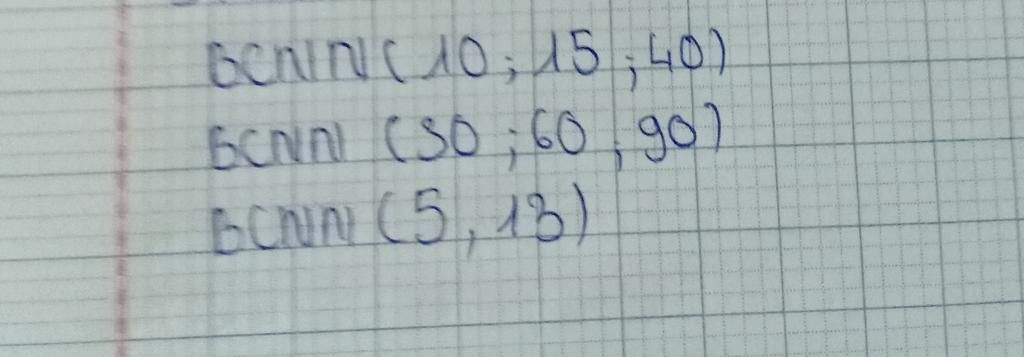 BCNN( 10 ; 15 ; 40)
BCNN (30 ; 60 , 90)
BCNN (5 , 13)